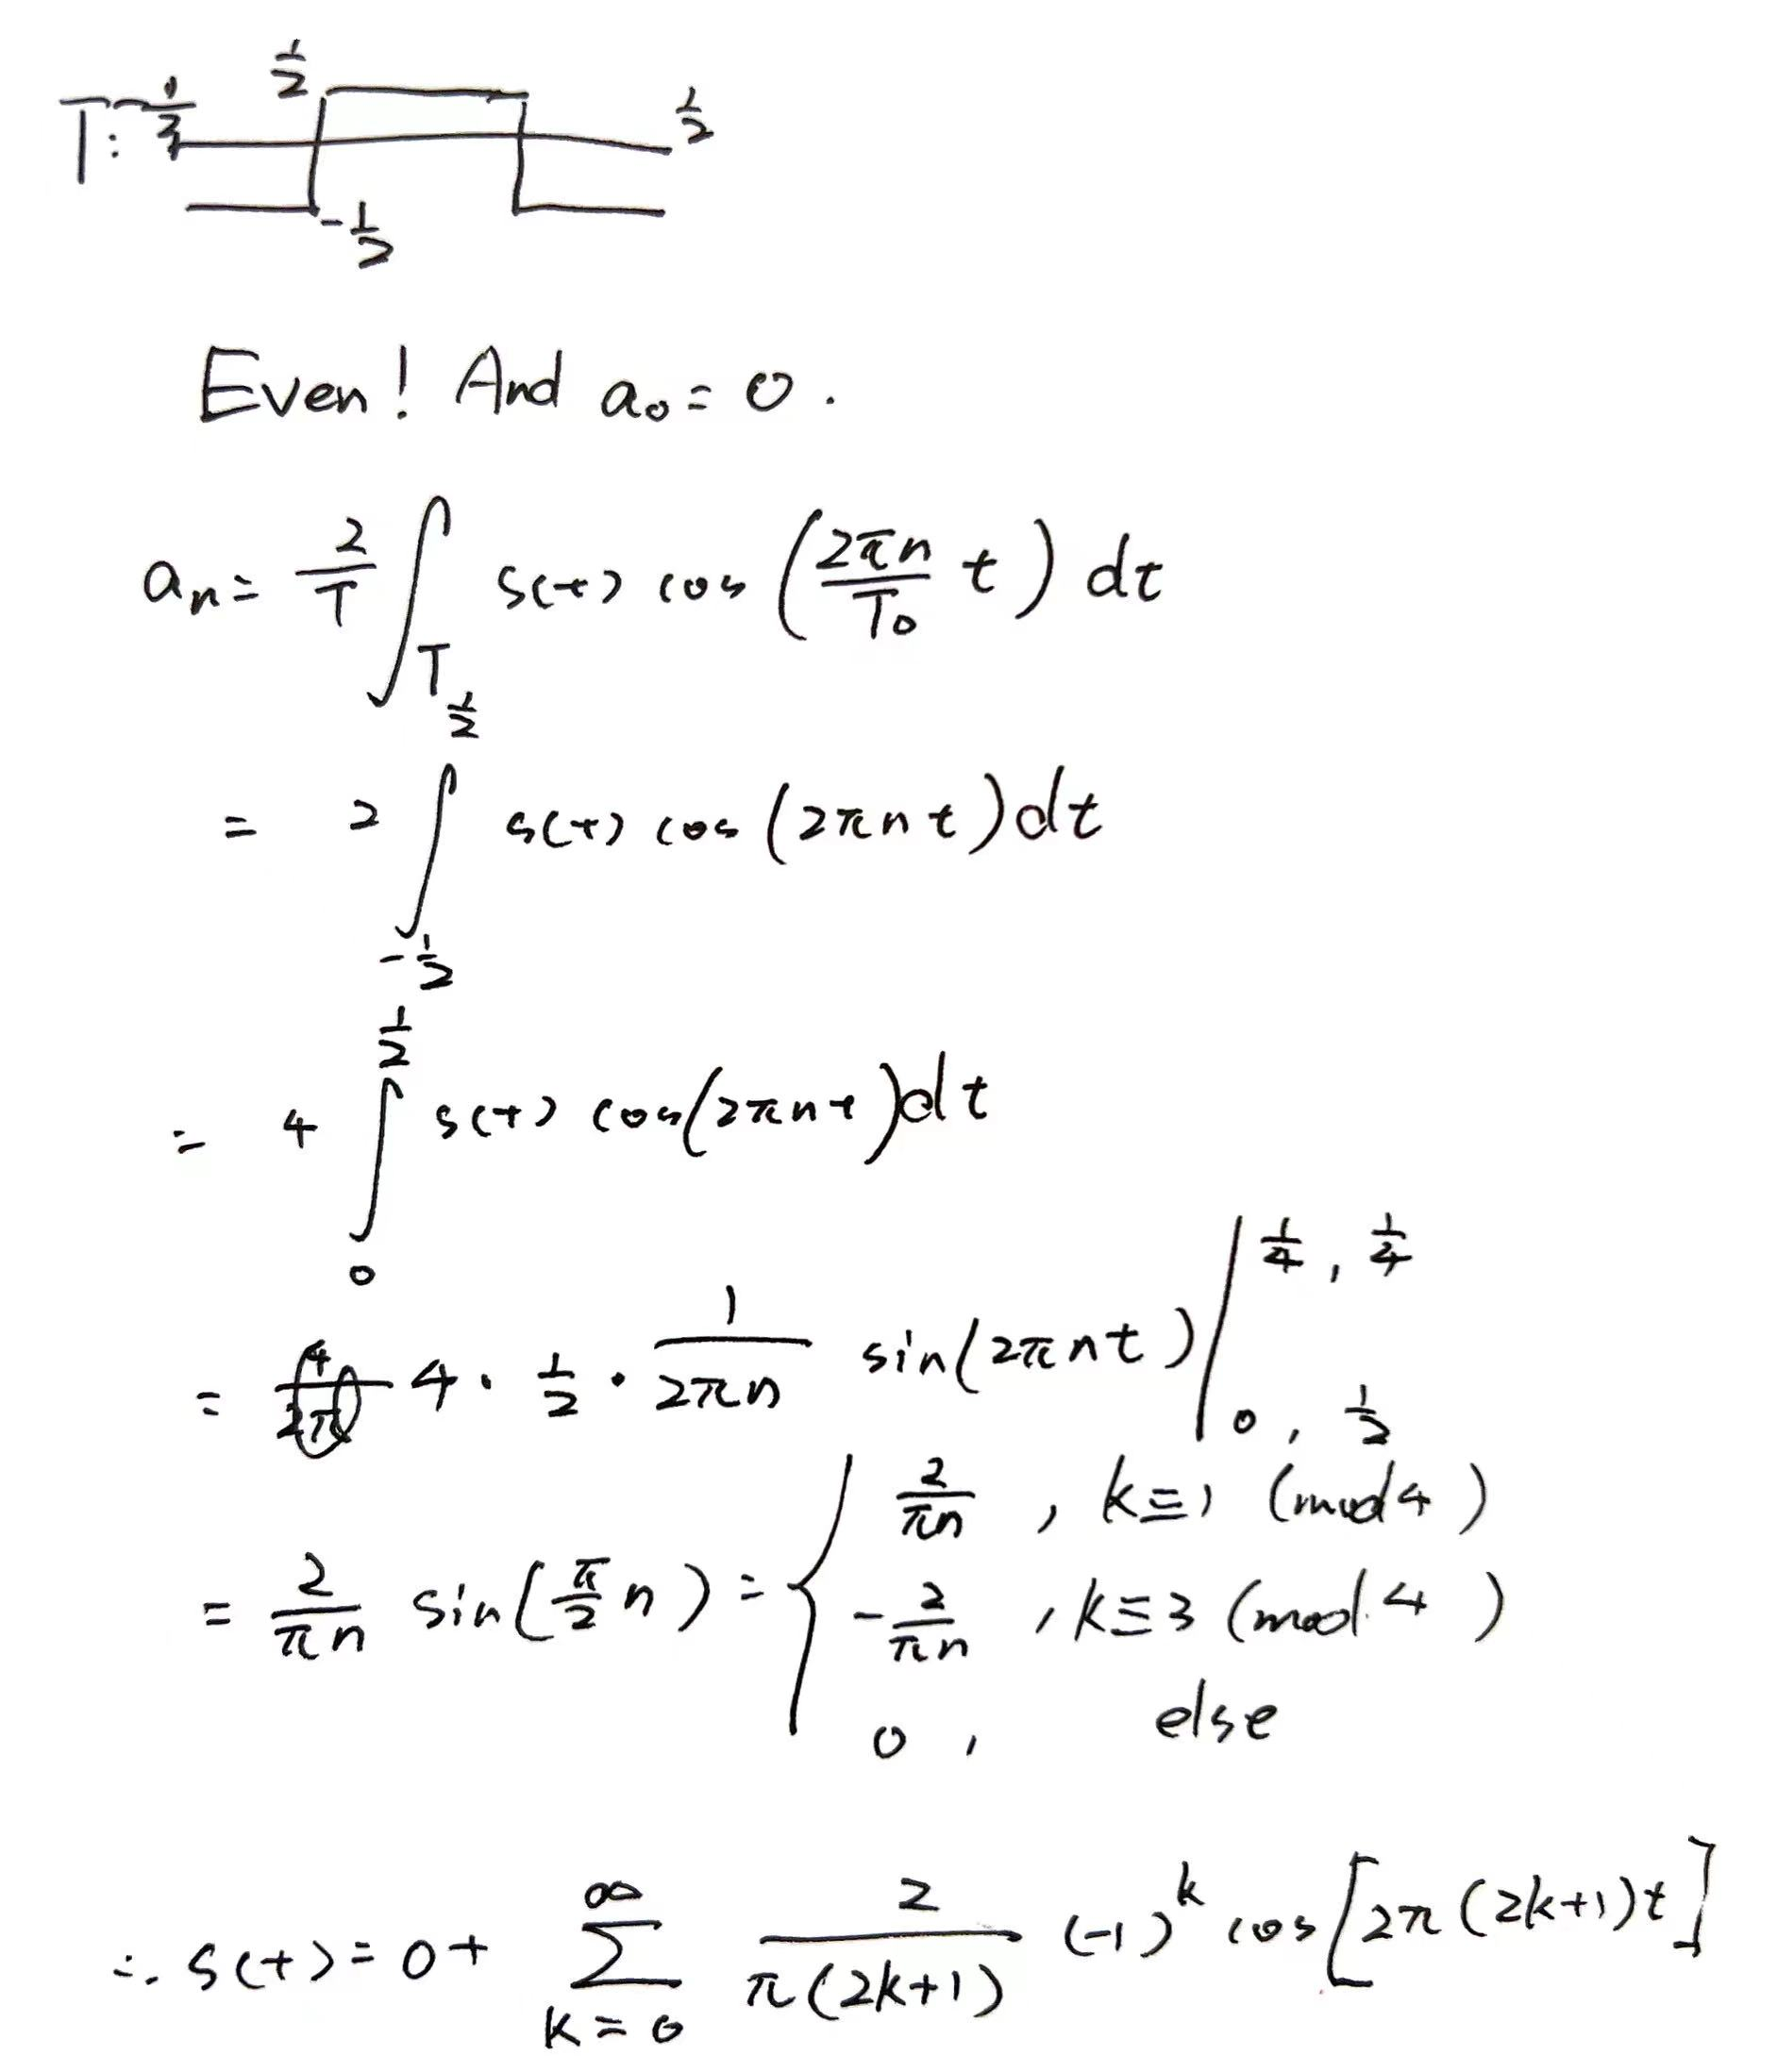 T: -1/2 1/2 1/2
-1/2
Even! And a₀ = 0.
aₙ = 2/T ∫_T s(t) cos(2πn/T₀ t) dt
= 2 ∫_{-1/2}^{1/2} s(t) cos(2πnt) dt
= 4 ∫_0^{1/2} s(t) cos(2πnt) dt
= 4 · 1/2 · 1/(2πn) sin(2πnt) |_{0, 1/2}^{1/4, 1/4}
= 2/(πn) sin(π/2 n) = { 2/(πn), k ≡ 1 (mod 4)
-2/(πn), k ≡ 3 (mod 4)
0, else
∴ s(t) = 0 + ∑_{k=0}^{∞} 2/(π(2k+1)) (-1)^k cos[2π(2k+1)t]